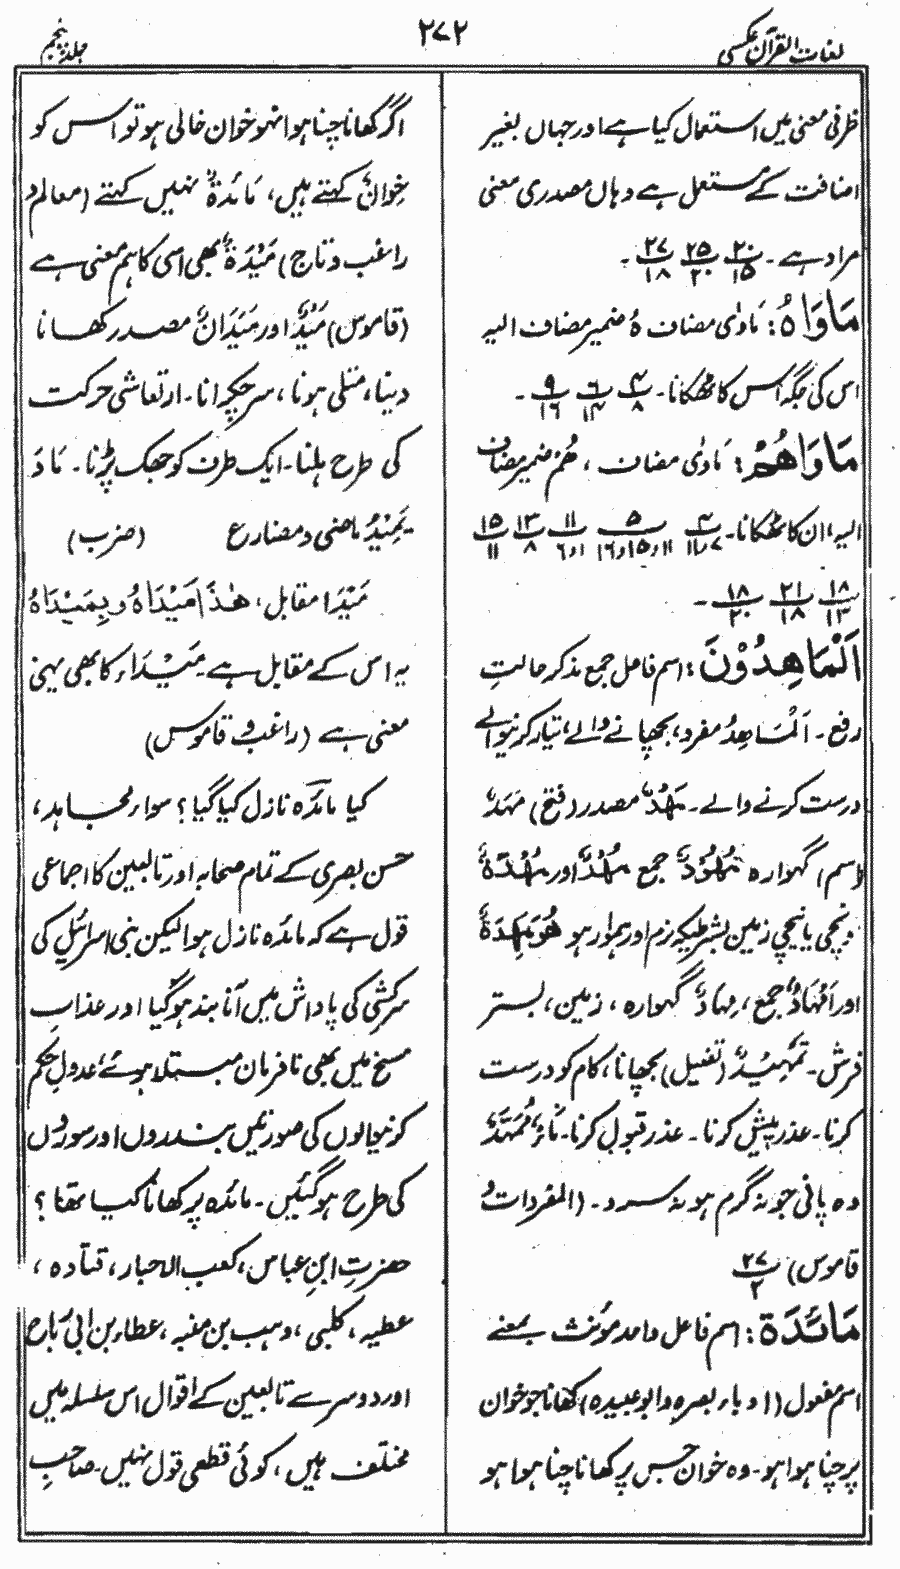 لغات القرآن عکسی
۲۷۲
جلد پنجم
ظرفی معنی میں استعمال کیا ہے اور جہاں بغیر
اضافت کے مستعمل ہے وہاں مصدری معنی
مراد ہے ۔ ۲۰/۱۵ ۲۵/۲۰ ۲۷/۱۸ ۔
مَاوَاہُ: مَاوٰی مضاف ہُ ضمیر مضاف الیہ
اس کی جگہ اس کا ٹھکانا ۔ ۴/۸ ۶/۱۴ ۹/۱۶ ۔
مَاوَاھُمْ: مَاوٰی مضاف ، ھُمْ ضمیر مضاف
الیہ، ان کا ٹھکانا۔ ۴/۷و۱۱ ۵/۱۱و۱۵و۱۶ ۱۱/۱و۶ ۱۳/۸ ۱۵/۱۱
۱۸/۱۳ ۲۱/۱۸ ۱۸/۲۰ ۔
اَلْمَاھِدُوْنَ: اسم فاعل جمع مذکر حالتِ
رفع ۔ اَلْمَاھِدُ مفرد، بچھانے والے، تیار کرنیوالے
درست کرنے والے ۔ مَھْدٌ مصدر (فتح) مَھْدٌ
(اسم) گہوارہ مُھُوْدٌ جمع مُھْدٌ اور مُھْدَۃٌ
اونچی یا نیچی زمین بشرطیکہ نرم اور ہموار ہو
اور اَمْھَادٌ جمع، مِھَادٌ گہوارہ ، زمین ، بستر
فرش ۔ تَمْھِیْدٌ (تفعیل) بچھانا، کام کو درست
کرنا ۔ عذر پیش کرنا ۔ عذر قبول کرنا ۔ مَاءٌ مُمَھَّدٌ
وہ پانی جو نہ گرم ہو نہ سرد ۔ (المفردات و
قاموس) ۲۷/۲
مَائِدَۃ: اسم فاعل واحد مؤنث بمعنے
اسم مفعول (ا و باء بصرہ و ابوعبیدہ) کھانا جو خوان
پر چنا ہوا ہو ۔ وہ خوان جس پر کھانا چنا ہوا ہو
اگر کھانا چنا ہوا نہو خوان خالی ہو تو اس کو
خِوَانٌ کہتے ہیں، مَائِدَۃٌ نہیں کہتے (معالم و
راغب و تاج) مَیْدَۃٌ بھی اسی کا ہم معنی ہے
(قاموس) مَیْدٌ اور مَیَدَانٌ مصدر کھانا
دینا، متلی ہونا، سر چکرانا ۔ ارتعاشی حرکت
کی طرح ہلنا ۔ ایک طرف کو جھک پڑنا ۔ مَادَ
یَمِیْدُ ماضی و مضارع (ضرب)
مَیْدَا مقابل، ھٰذَا مَیْدَاہُ وبِمَیْدَاہُ
یہ اس کے مقابل ہے ۔ مَیْدَاء کا بھی یہی
معنی ہے (راغب و قاموس)
کیا مائدہ نازل کیا گیا ؟ سواء مجاہد،
حسن بصری کے تمام صحابہ اور تابعین کا اجماعی
قول ہے کہ مائدہ نازل ہوا لیکن بنی اسرائیل کی
سرکشی کی پاداش میں آنا بند ہوگیا اور عذابِ
مسخ میں بھی نافرمان مبتلا ہوئے، عدولِ حکم
کرنیوالوں کی صورتیں بندروں اور سوروں
کی طرح ہوگئیں ۔ مائدہ پر کھانا کیا تھا ؟
حضرتِ ابنِ عباس، کعب الاحبار، قتادہ ،
عطیہ، کلبی، وہب بن منبہ، عطاء بن ابی رباح
اور دوسرے تابعین کے اقوال اس سلسلہ میں
مختلف ہیں، کوئی قطعی قول نہیں ۔ صاحبِ